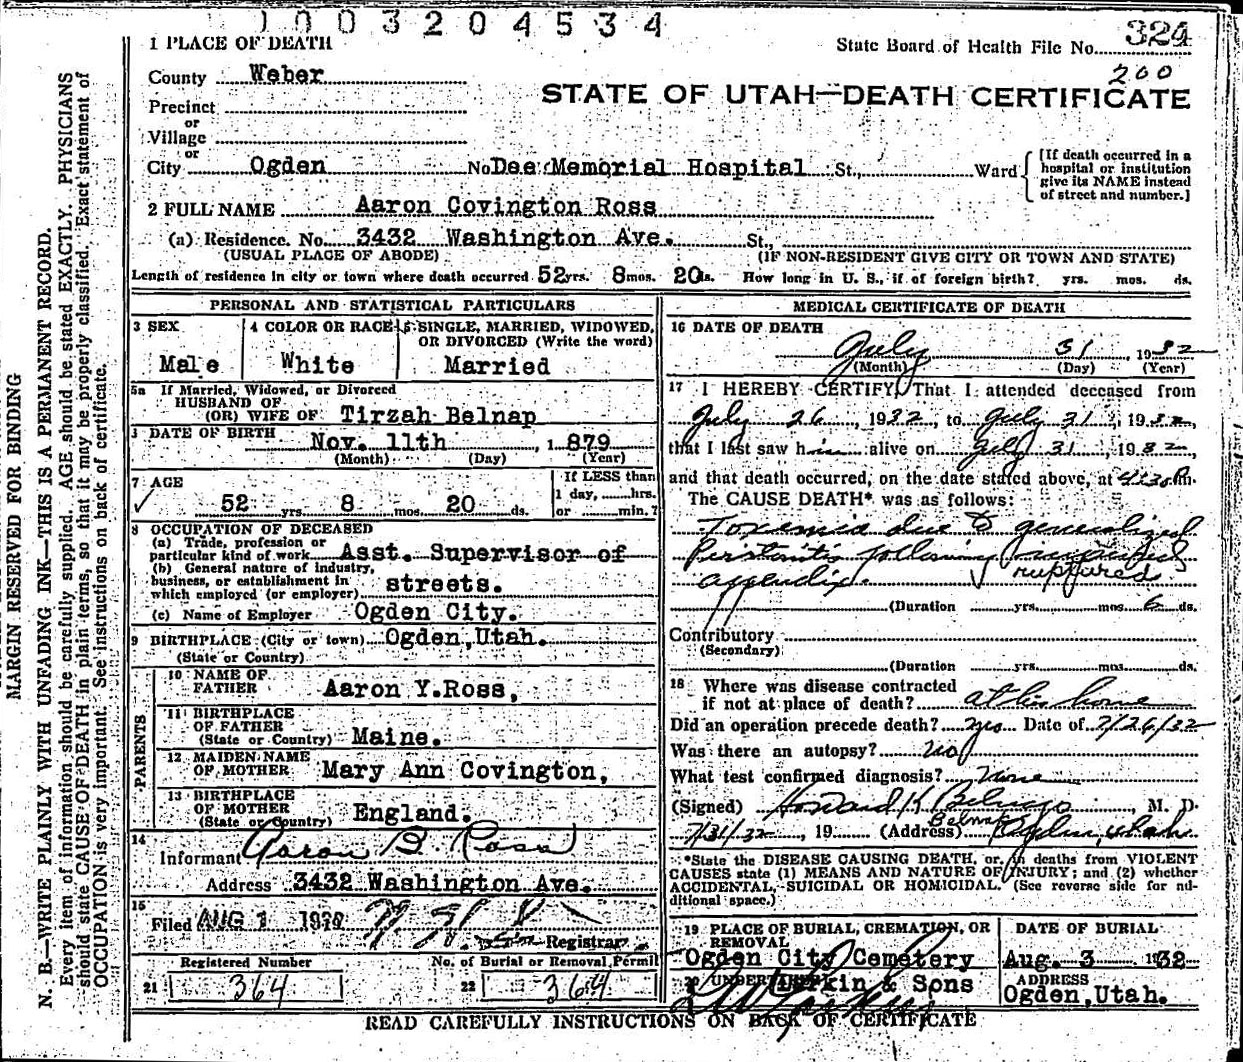 1003204534
1 PLACE OF DEATH
State Board of Health File No. 324
County Weber
200
STATE OF UTAH—DEATH CERTIFICATE
Precinct
or
Village
or
City Ogden No Dee Memorial Hospital St., Ward
[If death occurred in a
hospital or institution
give its NAME instead
of street and number.]
2 FULL NAME Aaron Covington Ross
(a) Residence. No. 3432 Washington Ave. St.,
(USUAL PLACE OF ABODE) (IF NON-RESIDENT GIVE CITY OR TOWN AND STATE)
Length of residence in city or town where death occurred 52 yrs. 8 mos. 20 ds. How long in U. S., if of foreign birth? yrs. mos. ds.
PERSONAL AND STATISTICAL PARTICULARS
3 SEX
Male
4 COLOR OR RACE
White
5 SINGLE, MARRIED, WIDOWED,
OR DIVORCED (Write the word)
Married
5a If Married, Widowed, or Divorced
HUSBAND OF
(OR) WIFE OF Tirzah Belnap
DATE OF BIRTH
Nov. 11th, 1879
(Month) (Day) (Year)
7 AGE
52 yrs. 8 mos. 20 ds.
If LESS than
1 day, hrs.
or min.?
8 OCCUPATION OF DECEASED
(a) Trade, profession or
particular kind of work Asst. Supervisor of
(b) General nature of industry,
business, or establishment in streets.
which employed (or employer)
(c) Name of Employer Ogden City.
9 BIRTHPLACE (City or town) Ogden,Utah.
(State or Country)
PARENTS
10 NAME OF
FATHER Aaron Y.Ross,
11 BIRTHPLACE
OF FATHER
(State or Country) Maine.
12 MAIDEN NAME
OF MOTHER Mary Ann Covington,
13 BIRTHPLACE
OF MOTHER
(State or Country) England.
14
Informant Aaron B. Ross
Address 3432 Washington Ave.
15
Filed AUG 1 19
Registrar
Registered Number
21 364
No. of Burial or Removal Permit
22 364
MEDICAL CERTIFICATE OF DEATH
16 DATE OF DEATH
July 31, 1932
(Month) (Day) (Year)
17 I HEREBY CERTIFY, That I attended deceased from
July 26, 1932, to July 31, 1932,
that I last saw him alive on July 31, 1932,
and that death occurred, on the date stated above, at 4:30 Pm.
The CAUSE DEATH* was as follows:
Toxemia due to generalized
Peritonitis following
appendix. ruptured
(Duration yrs. mos. 6 ds.
Contributory
(Secondary)
(Duration yrs. mos. ds.
18 Where was disease contracted
if not at place of death? at his home
Did an operation precede death? yes Date of 7/26/32
Was there an autopsy? no
What test confirmed diagnosis? None
(Signed) Howard K Belnap, M. D.
Belnap
7/31/32, 19 (Address) Ogden, Utah
*State the DISEASE CAUSING DEATH, or, in deaths from VIOLENT
CAUSES state (1) MEANS AND NATURE OF INJURY; and (2) whether
ACCIDENTAL, SUICIDAL OR HOMICIDAL. (See reverse side for ad-
ditional space.)
19 PLACE OF BURIAL, CREMATION, OR
REMOVAL
Ogden City Cemetery
DATE OF BURIAL
Aug. 3 1932
20 UNDERTAKER
Larkin & Sons
ADDRESS
Ogden,Utah.
READ CAREFULLY INSTRUCTIONS ON BACK OF CERTIFICATE
MARGIN RESERVED FOR BINDING
N. B.—WRITE PLAINLY WITH UNFADING INK—THIS IS A PERMANENT RECORD.
Every item of information should be carefully supplied. AGE should be stated EXACTLY. PHYSICIANS
should state CAUSE OF DEATH in plain terms, so that it may be properly classified. Exact statement of
OCCUPATION is very important. See instructions on back of certificate.